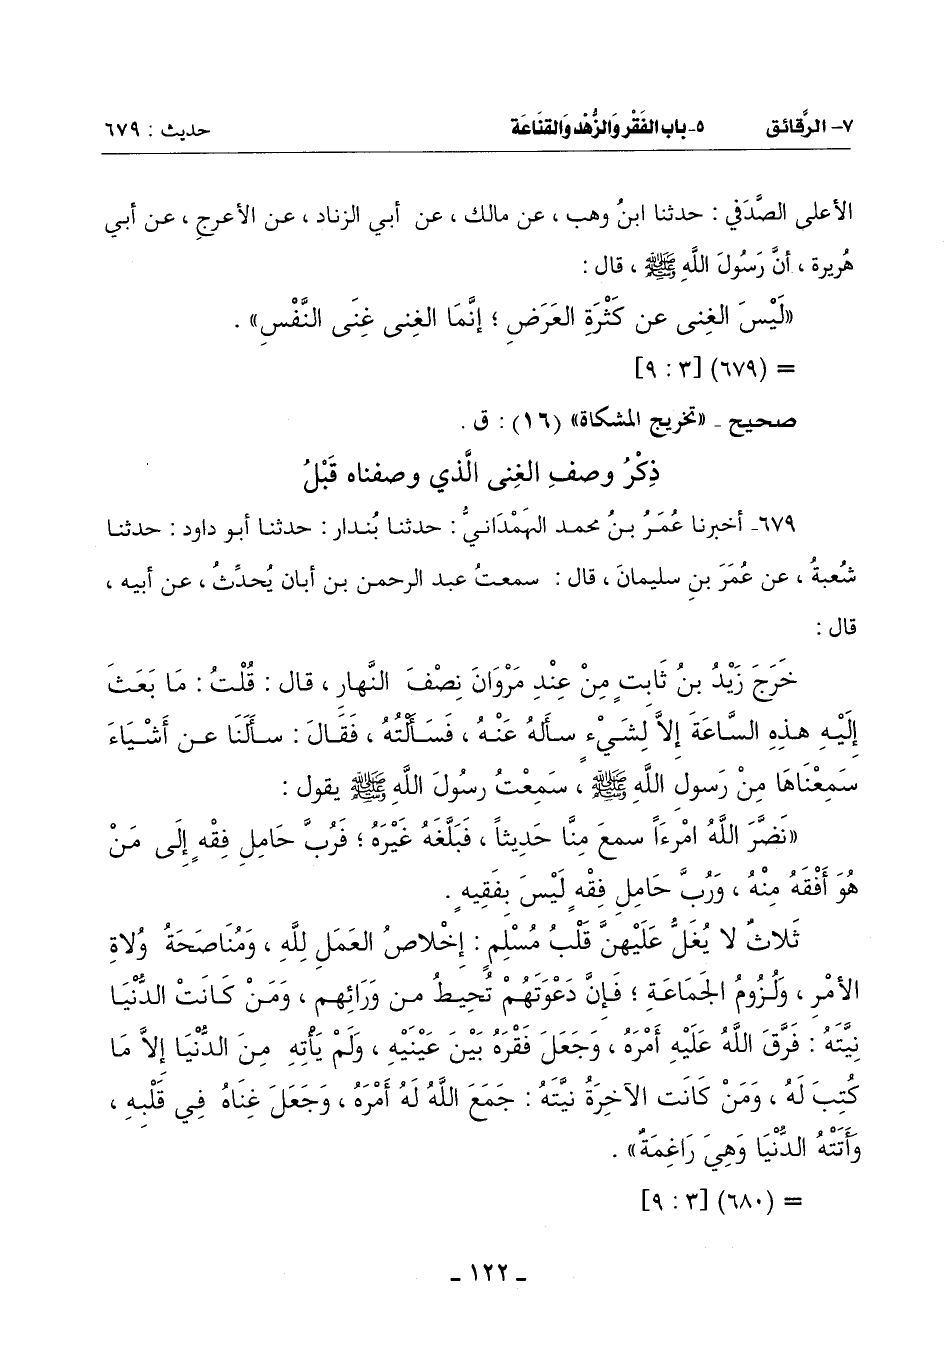 ٧- الرَّقائق ٥- باب الفَقْر وَالزُّهْد وَالقنَاعَة حديث : ٦٧٩
الأعلى الصَّدَفي : حدثنا ابنُ وهب ، عن مالك ، عن أبي الزناد ، عن الأعرجِ ، عن أبي
هُريرة ، أنَّ رَسُولَ اللَّهِ ﷺ ، قال :
«لَيْسَ الغِنى عن كَثْرَةِ العَرَضِ ؛ إنَّمَا الغِنى غِنَى النَّفْسِ» .
= (٦٧٩) [٣ : ٩]
صحيح ـ «تخريج المشكاة» (١٦) : ق .
ذِكْرُ وصفِ الغِنى الَّذي وصفناه قَبْلُ
٦٧٩- أخبرنا عُمَرُ بنُ محمد الهَمْدَانيُّ : حدثنا بُندار : حدثنا أبو داود : حدثنا
شُعبةُ ، عن عُمَرَ بنِ سليمانَ ، قال : سمعتُ عبد الرحمن بن أبان يُحدِّثُ ، عن أبيه ،
قال :
خَرَجَ زَيْدُ بنُ ثَابتٍ مِنْ عِنْدِ مَرْوَانَ نِصْفَ النَّهارِ ، قال : قُلْتُ : مَا بَعَثَ
إلَيْهِ هذِهِ السَّاعَةَ إلاَّ لِشَيْءٍ سألهُ عَنْهُ ، فَسَأَلْتُهُ ، فَقَالَ : سألَنَا عن أَشْيَاءَ
سَمِعْنَاهَا مِنْ رَسولِ اللَّهِ ﷺ ، سَمِعْتُ رسولَ اللَّهِ ﷺ يقول :
«نَضَّرَ اللَّهُ امْرءَاً سمعَ مِنَّا حَديثاً ، فَبَلَّغَهُ غَيْرَهُ ؛ فَرُبَّ حَاملِ فِقْهٍ إلَى مَنْ
هُوَ أَفْقَهُ مِنْهُ ، وَرُبَّ حَاملِ فِقْهٍ لَيْسَ بِفَقِيهٍ .
ثَلاثٌ لا يُغَلُّ عَلَيْهنَّ قَلْبُ مُسْلِمٍ : إخْلاصُ العَمَلِ لِلَّهِ ، وَمُنَاصَحَةُ وُلاةِ
الأمْرِ ، وَلُزُومُ الجَمَاعَةِ ؛ فَإنَّ دَعْوَتَهُمْ تُحيطُ من وَرَائِهم ، وَمَنْ كَانَتْ الدُّنْيَا
نِيَّتَهُ : فَرَّقَ اللَّهُ عَلَيْهِ أَمْرَهُ ، وَجَعَلَ فَقْرَهُ بَيْنَ عَيْنَيْهِ ، وَلَمْ يَأْتِهِ مِنَ الدُّنْيَا إلاَّ مَا
كُتِبَ لَهُ ، وَمَنْ كَانَت الآخِرَةُ نِيَّتَهُ : جَمَعَ اللَّهُ لَهُ أَمْرَهُ ، وَجَعَلَ غِنَاهُ فِي قَلْبِهِ ،
وَأَتَتْهُ الدُّنْيَا وَهِيَ رَاغِمَةٌ» .
= (٦٨٠) [٣ : ٩]
ـ ١٢٢ ـ